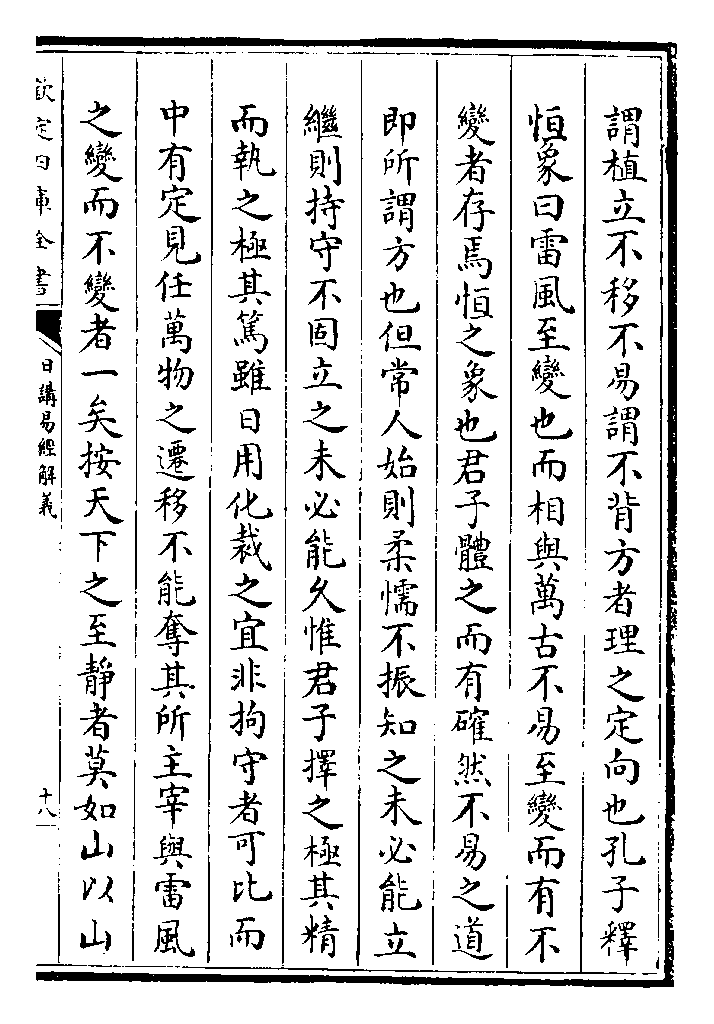 謂植立不移不易謂不背方者理之定向也孔子釋
恒象曰雷風至變也而相與萬古不易至變而有不
變者存焉恒之象也君子體之而有確然不易之道
即所謂方也但常人始則柔懦不振知之未必能立
繼則持守不固立之未必能久惟君子擇之極其精
而執之極其篤雖日用化裁之宜非拘守者可比而
中有定見任萬物之遷移不能奪其所主宰與雷風
之變而不變者一矣按天下之至靜者莫如山以山
欽定四庫全書
日講易經解義
十八